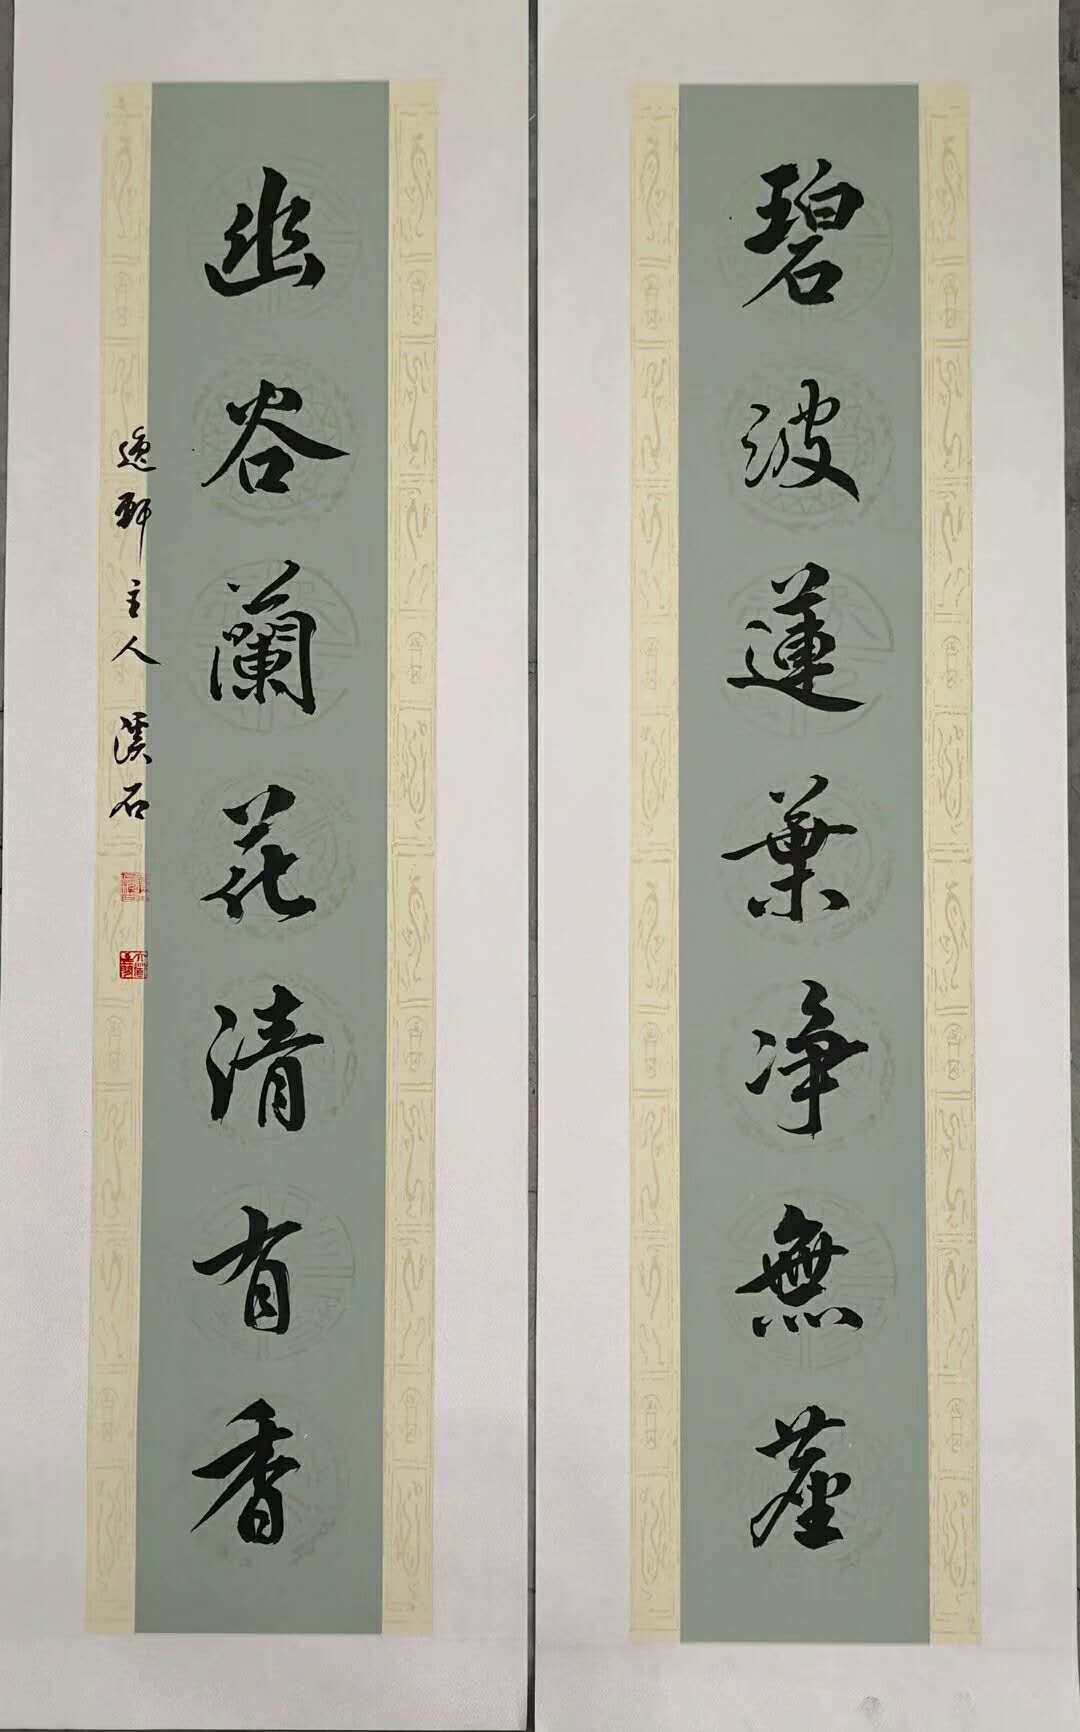 碧波蓮葉净無塵
幽谷蘭花清有香
逸軒主人 溪石